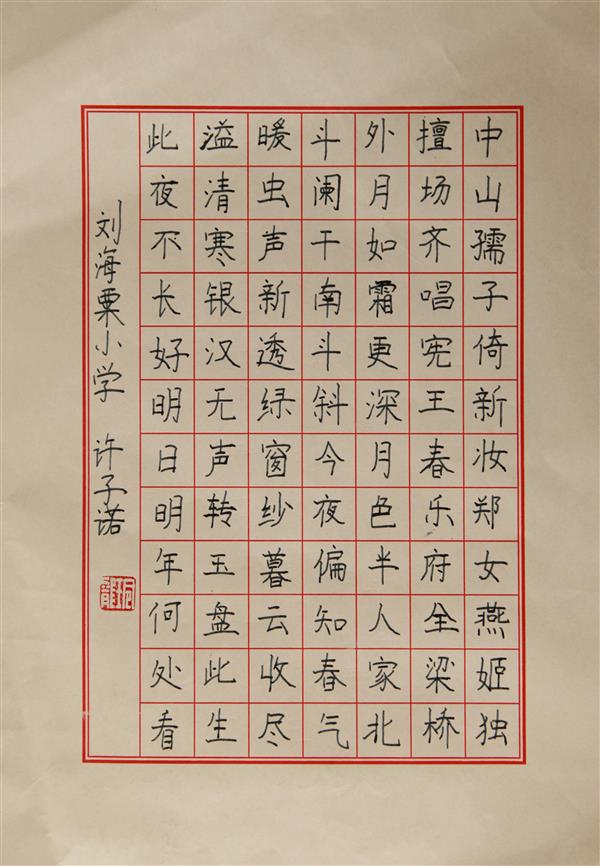 中山孺子倚新妆郑女燕姬独
擅场齐唱宪王春乐府全梁桥
外月如霜更深月色半人家北
斗阑干南斗斜今夜偏知春气
暖虫声新透绿窗纱暮云收尽
溢清寒银汉无声转玉盘此生
此夜不长好明日明年何处看
刘海粟小学 许子诺